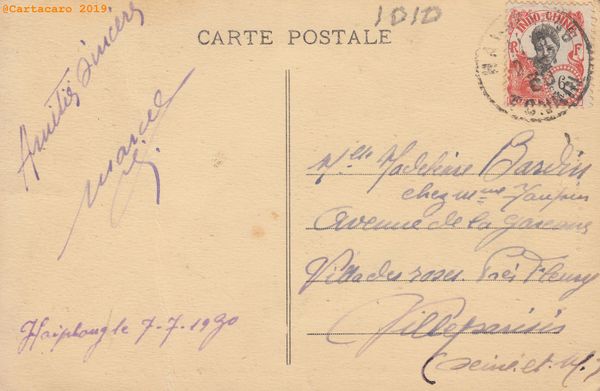 @Cartacaro 2019
1010
CARTE POSTALE
INDO-CHINE
R F
TONKIN
Amitiés Sincères
Marcel
Haiphong le 7-7-1920
Melle Madeleine Bardin
chez mme
Avenue de la
Villa des roses Près Fleury
Villeparisis
(Seine et M.)